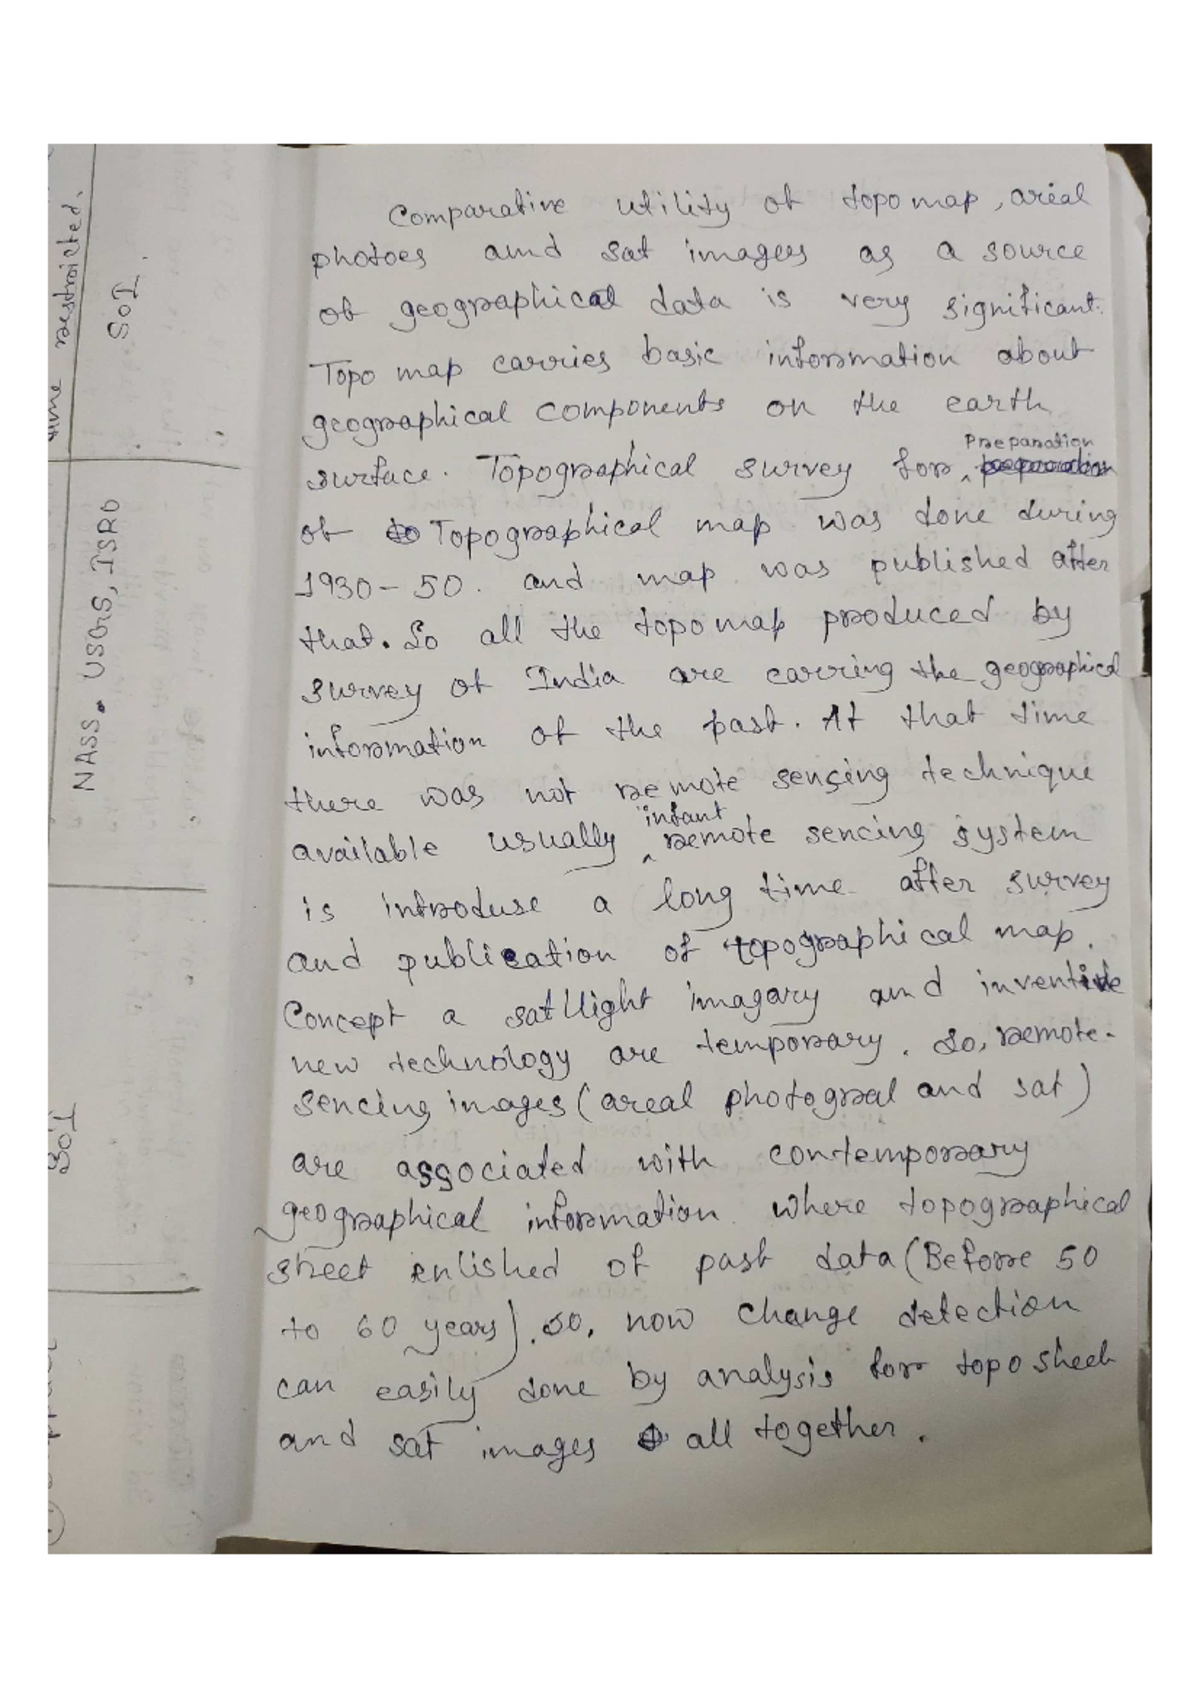 time restricted.
SoI.
NASS. USGS, ISRO
SoI
Comparative utility of topo map, areal
photoes and sat images as a source
of geographical data is very significant.
Topo map carries basic information about
geographical components on the earth
surface. Topographical survey for Preparation
of Topographical map was done during
1930-50. and map was published after
that. So all the topo map produced by
survey of India are carring the geographical
information of the past. At that time
there was not remote sensing technique
available usually infant remote sencing system
is introduse a long time after survey
and publication of topographical map.
Concept a satllight imagary and inventive
new technology are temporary. So, remote-
sencing images (areal photogral and sat)
are associated with contemporary
geographical information where topographical
sheet enlished of past data (Before 50
to 60 years). so, now change detection
can easily done by analysis for topo sheet
and sat images all together.